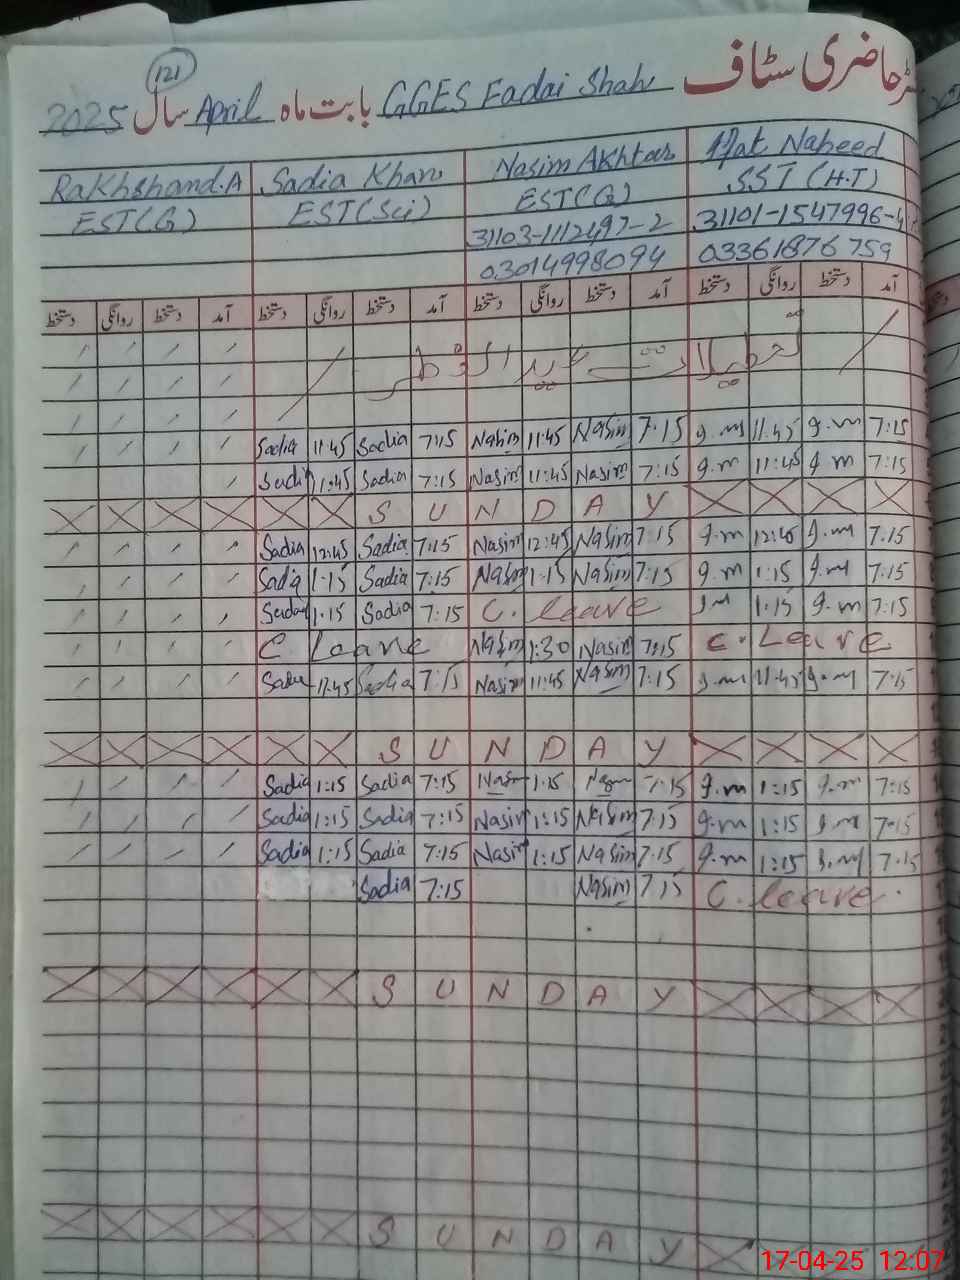 121
حاضری سٹاف GGES Fadai Shah بابت ماہ April سال 2025
Nasim Akhtar
Naheed
Rakhshand.A Sadia Khan EST(G) SST (H.T)
EST(G) EST(Sci) 31103-1112497-2 31101-1547996-4
03014998094 03361876759
آمد دستخط روانگی دستخط آمد دستخط روانگی دستخط آمد دستخط روانگی دستخط آمد دستخط روانگی دستخط
تعطیلات عید الفطر
Sadia 11:45 Sadia 7:15 Nasim 11:45 Nasim 7:15 g.m 11:45 g.m 7:15
Sadia 11:45 Sadia 7:15 Nasim 11:45 Nasim 7:15 g.m 11:45 g.m 7:15
S U N D A Y
Sadia 12:45 Sadia 7:15 Nasim 12:45 Nasim 7:15 g.m 12:45 g.m 7:15
Sadia 1:15 Sadia 7:15 Nasim 1:15 Nasim 7:15 g.m 1:15 g.m 7:15
Sadia 1:15 Sadia 7:15 C. leave g.m 1:15 g.m 7:15
C. Leave Nasim 1:30 Nasim 7:15 C. Leave
Sadia 11:45 Sadia 7:15 Nasim 11:45 Nasim 7:15 g.m 11:45 g.m 7:15
S U N D A Y
Sadia 1:15 Sadia 7:15 Nasim 1:15 Nasim 7:15 g.m 1:15 g.m 7:15
Sadia 1:15 Sadia 7:15 Nasim 1:15 Nasim 7:15 g.m 1:15 g.m 7:15
Sadia 1:15 Sadia 7:15 Nasim 1:15 Nasim 7:15 g.m 1:15 g.m 7:15
Sadia 7:15 Nasim 7:15 C. leave.
S U N D A Y
S U N D A Y
17-04-25 12:07